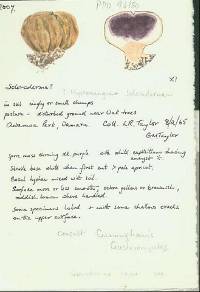 PDD 92150
x1
Scleroderma?
in soil singly or small clumps
pasture - disturbed ground near Oak trees
Awamoa Park, Oamaru Coll. L.R. Taylor
G.M. Taylor
Spore mass turning dk purple with white capillitium showing
amongst it.
Sterile base white when first cut > pale apricot.
Basal hyphae mixed with soil.
Surface more or less smooth, ochre yellow or brownish,
reddish brown where handled.
Some specimens lobed & with some shallow cracks
on the upper surface.
consult Cunningham's
Gasteromycetes